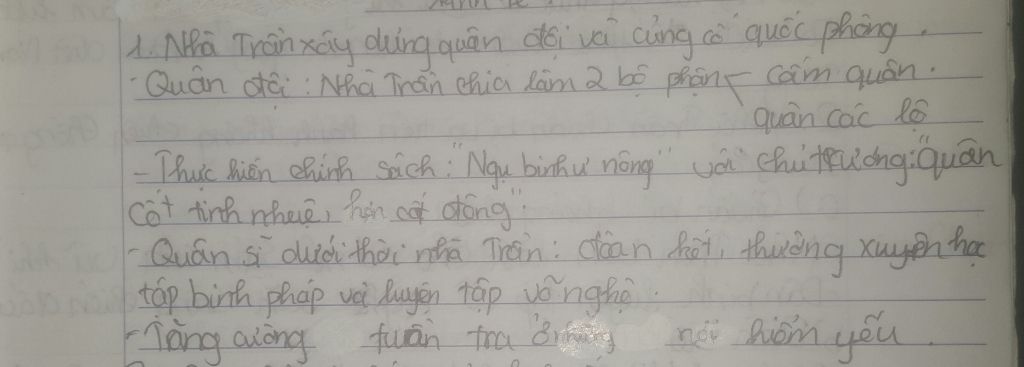 1. Nhà Trần xây dựng quân đội và củng cố quốc phòng.
- Quân đội: Nhà Trần chia làm 2 bộ phận cấm quân.
quân các lộ
- Thực hiện chính sách: "Ngụ binh ư nông" với chủ trương: "Quân
cốt tinh nhuệ, hơn cốt đông".
- Quân sĩ dưới thời nhà Trần: đoàn kết, thường xuyên học
tập binh pháp và luyện tập võ nghệ.
- Tăng cường tuần tra ở nơi hiểm yếu.